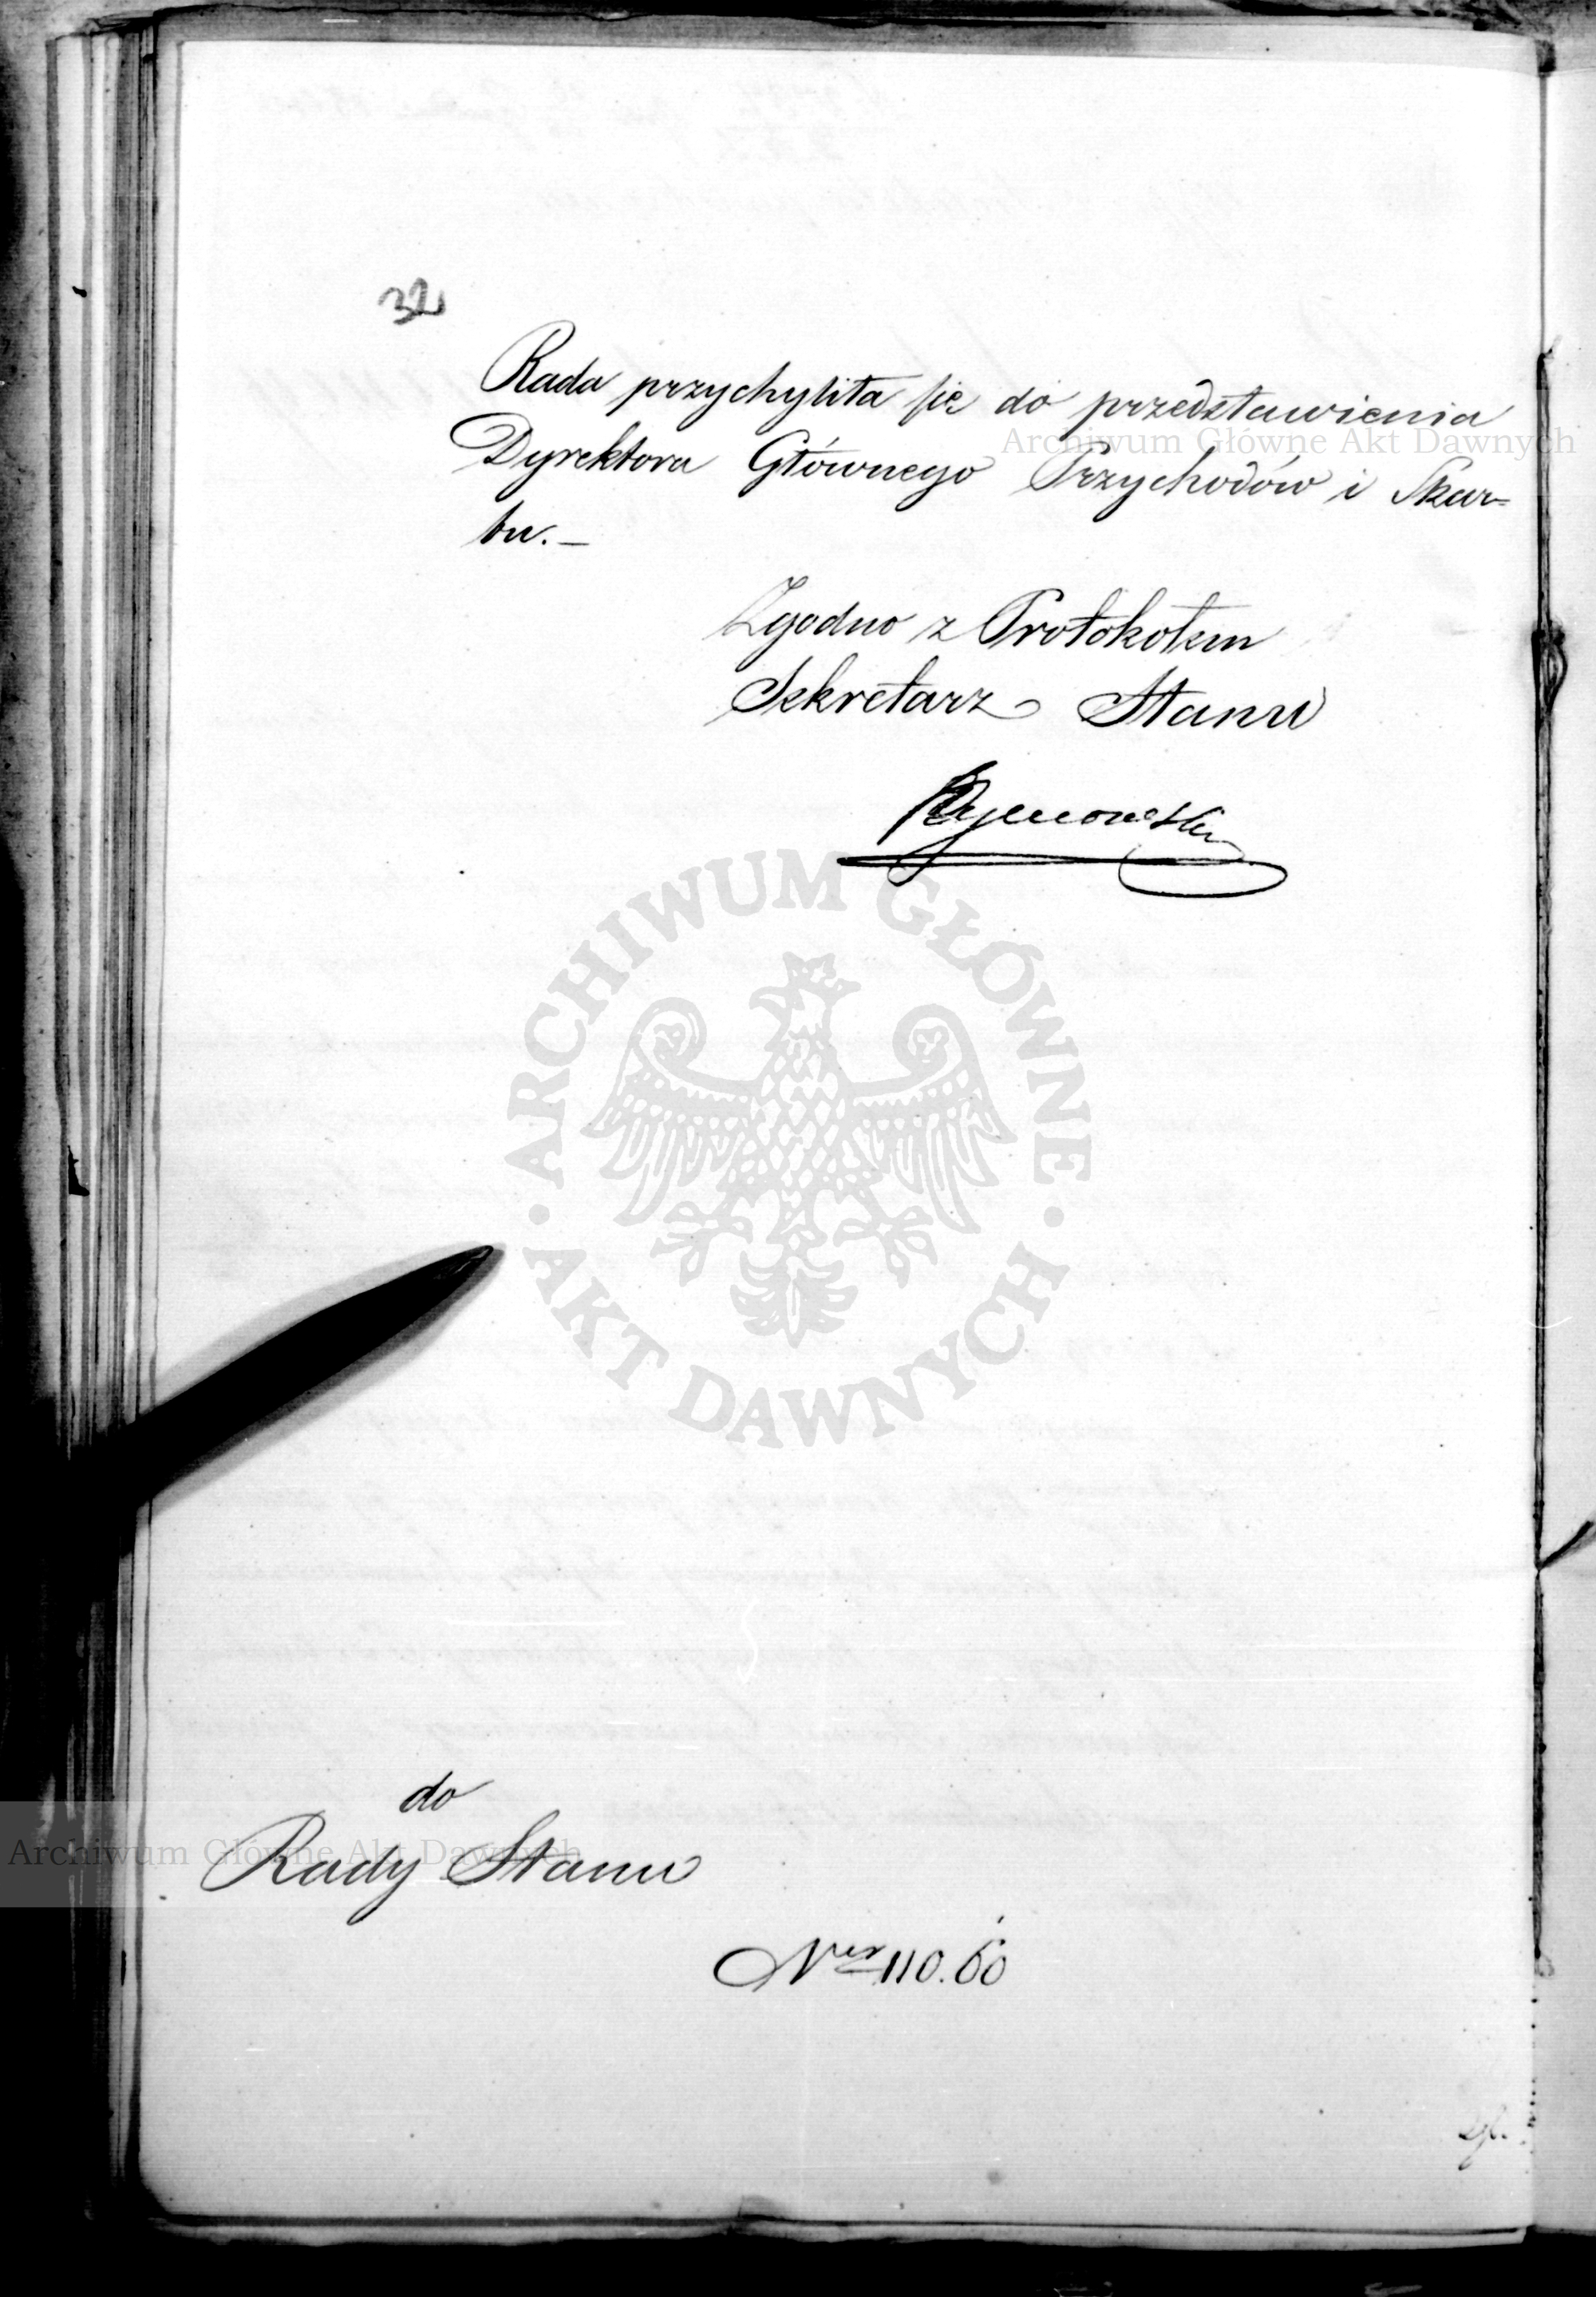 32
Rada przychyliła się do przedstawienia
Archiwum Główne Akt Dawnych
Dyrektora Głównego Przychodów i Skar=
bu.—
Zgodno z Protokołem
Sekretarz Stanu
ARCHIWUM GŁÓWNE
AKT DAWNYCH
do
Rady Stanu
Archiwum Główne Akt Dawnych
Ner 110.60